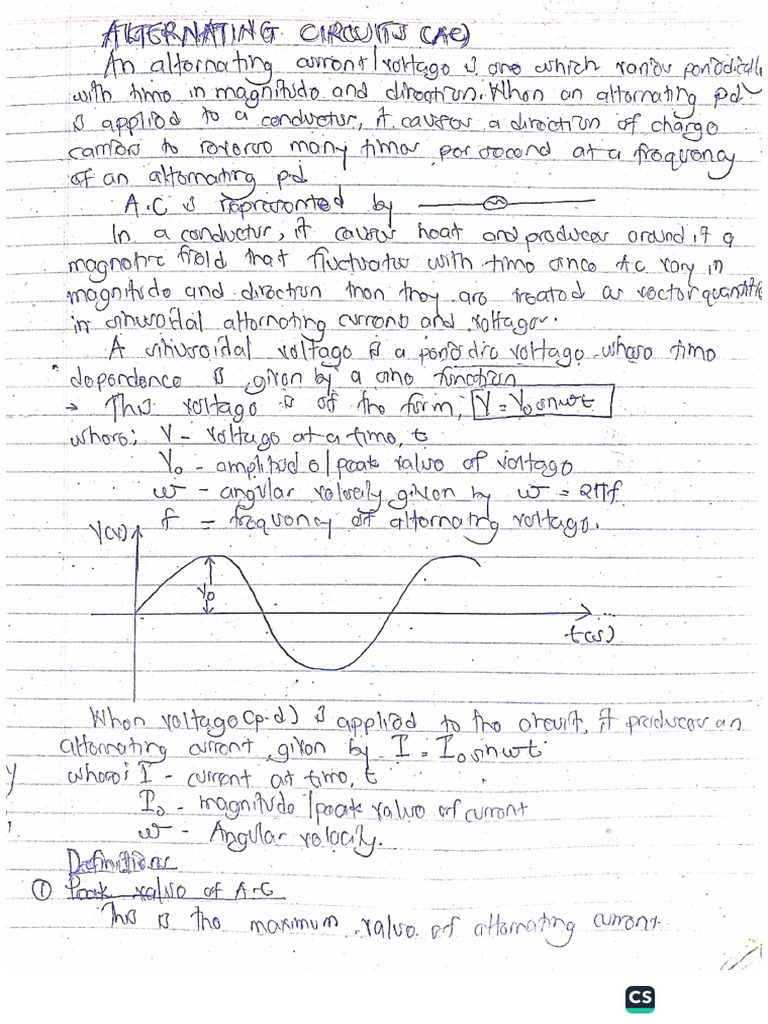 ALTERNATING CIRCUITS (AC)
An alternating current/voltage is one which varies periodically
with time in magnitude and direction. When an alternating pd
is applied to a conductor, it causes a direction of charge
carriers to reverse many times per second at a frequency
of an alternating pd
A.C is represented by
In a conductor, it causes heat and produces around it a
magnetic field that fluctuates with time since A.C vary in
magnitude and direction then they are treated as vector quantities
in sinusoidal alternating currents and voltages.
A sinusoidal voltage is a periodic voltage whose time
dependence is given by a sine function
→ This voltage is of the form, V = V₀ sin wt
where; V - voltage at a time, t
V₀ - amplitude/peak value of voltage
w - angular velocity given by w = 2πf
f = frequency of alternating voltage.
V(v)
V₀
t(s)
When voltage (p.d) is applied to the circuit, it produces an
alternating current given by I = I₀ sin wt
where; I - current at time, t
I₀ - magnitude/peak value of current
w - Angular velocity.
Definitions
① Peak value of A.C
This is the maximum value of alternating current
CS